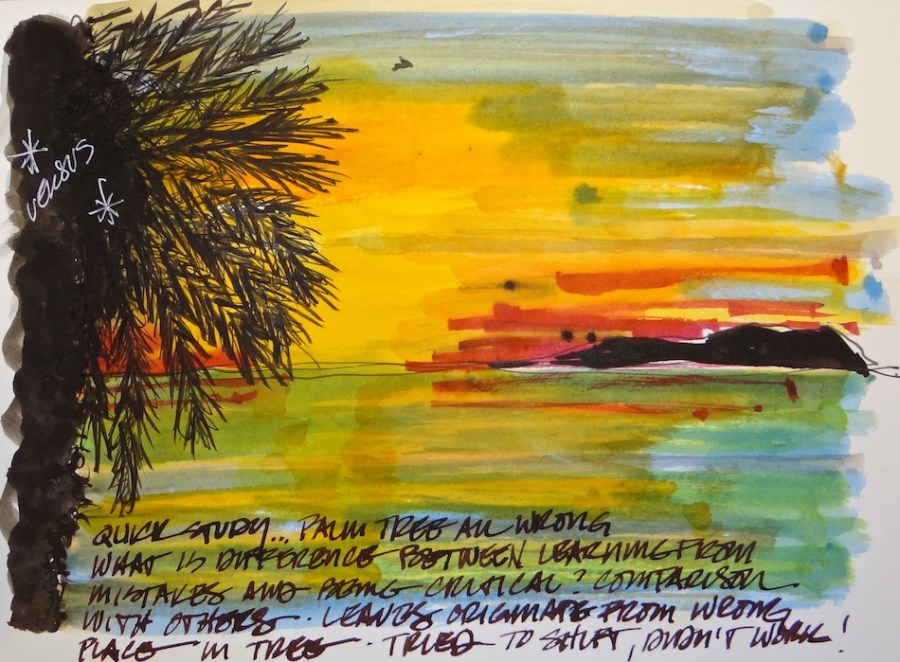 * VERSUS *
QUICK STUDY... PALM TREE ALL WRONG
WHAT IS DIFFERENCE BETWEEN LEARNING FROM
MISTAKES AND BEING CRITICAL? COMPARISON
WITH OTHERS. LEAVES ORIGINATE FROM WRONG
PLACE IN TREE. TRIED TO SHIFT, DIDN'T WORK!